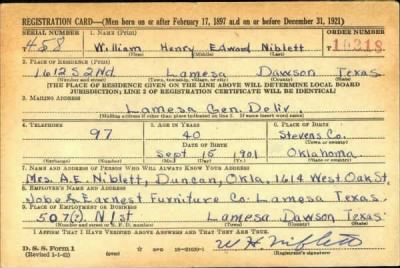 REGISTRATION CARD—(Men born on or after February 17, 1897 and on or before December 31, 1921)
SERIAL NUMBER 1. NAME (Print) ORDER NUMBER
T 458 William Henry Edward Niblett 10318
2. PLACE OF RESIDENCE (Print)
1612 S 2Nd. Lamesa Dawson Texas
(Number and street) (Town, township, village, or city) (County) (State)
[THE PLACE OF RESIDENCE GIVEN ON THE LINE ABOVE WILL DETERMINE LOCAL BOARD
JURISDICTION; LINE 2 OF REGISTRATION CERTIFICATE WILL BE IDENTICAL]
3. MAILING ADDRESS
Lamesa Gen. Deliv.
[Mailing address if other than place indicated on line 2. If same insert word same]
4. TELEPHONE 5. AGE IN YEARS 6. PLACE OF BIRTH
97 40 Stevens Co.
DATE OF BIRTH (Town or county)
Sept 16 1901 Oklahoma
(Exchange) (Number) (Mo.) (Day) (Yr.) (State or country)
7. NAME AND ADDRESS OF PERSON WHO WILL ALWAYS KNOW YOUR ADDRESS
Mrs. A.E. Niblett, Duncan, Okla, 1614 West Oak St,
8. EMPLOYER'S NAME AND ADDRESS
Jobe & Earnest Furniture Co. Lamesa Texas.
9. PLACE OF EMPLOYMENT OR BUSINESS
507 N 1st Lamesa Dawson Texas
(Number and street or R. F. D. number) (Town) (County) (State)
I AFFIRM THAT I HAVE VERIFIED ABOVE ANSWERS AND THAT THEY ARE TRUE.
D. S. S. Form 1
(Revised 1-1-42) GPO 16—21630-1 W H Niblett
(Registrant's signature)